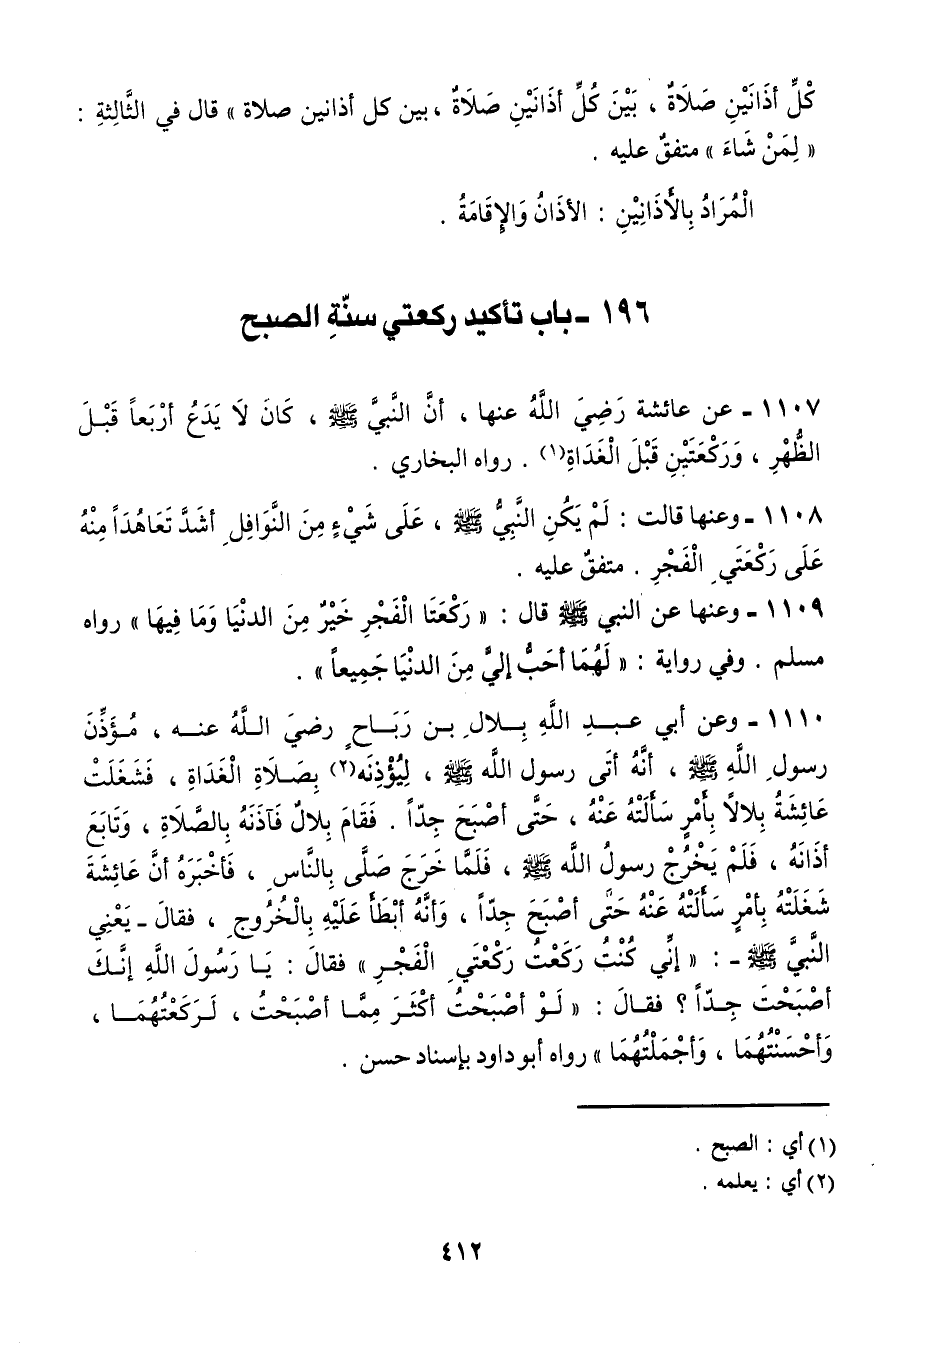 كُلِّ أذَانَيْنِ صَلَاةٌ ، بَيْنَ كُلِّ أذَانَيْنِ صَلَاةٌ ، بين كل أذانين صلاة » قال في الثَّالِثةِ :
« لِمَنْ شَاءَ » متفقٌ عليه .
الْمُرَادُ بِالأَذَانِيْنِ : الأذَانُ وَالإِقَامَةُ .
١٩٦ - باب تأكيد ركعتي سنّةِ الصبح
١١٠٧ - عن عائشة رَضِيَ اللَّهُ عنها ، أنَّ النَّبِيَّ ﷺ ، كَانَ لَا يَدَعُ أرْبَعاً قَبْلَ
الظُّهْرِ ، وَرَكْعَتَيْنِ قَبْلَ الْغَدَاةِ(١) . رواه البخاري .
١١٠٨ - وعنها قالت : لَمْ يَكُنِ النَّبِيُّ ﷺ ، عَلَى شَيْءٍ مِنَ النَّوَافِلِ أشَدَّ تَعَاهُدَاً مِنْهُ
عَلَى رَكْعَتَيِ الْفَجْرِ . متفقٌ عليه .
١١٠٩ - وعنها عن النبي ﷺ قال : « رَكْعَتَا الْفَجْرِ خَيْرٌ مِنَ الدنْيَا وَمَا فِيهَا » رواه
مسلم . وفي رواية : « لَهُمَا أحَبُّ إليَّ مِنَ الدنْيَا جَمِيعاً » .
١١١٠ - وعن أبي عبد اللَّهِ بِلالِ بن رَبَاحٍ رضيَ اللَّهُ عنه ، مُؤَذِّنَ
رسولِ اللَّهِ ﷺ ، أنَّهُ أتَى رسول اللَّه ﷺ ، لِيُؤْذِنَه(٢) بِصَلَاةِ الْغَدَاةِ ، فَشَغَلَتْ
عَائِشَةُ بِلالاً بِأَمْرٍ سَأَلَتْهُ عَنْهُ ، حَتَّى أصْبَحَ جِدّاً . فَقَامَ بِلالٌ فَآذَنَهُ بِالصَّلَاةِ ، وَتَابَعَ
أذَانَهُ ، فَلَمْ يَخْرُجْ رسولُ اللَّه ﷺ ، فَلَمَّا خَرَجَ صَلَّى بِالنَّاسِ ، فَأخْبَرَهُ أنَّ عَائِشَةَ
شَغَلَتْهُ بِأمْرٍ سَأَلَتْهُ عَنْهُ حَتَّى أصْبَحَ جِدّاً ، وَأنَّهُ أبْطَأَ عَلَيْهِ بِالْخُرُوجِ ، فقالَ - يَعْنِي
النَّبِيَّ ﷺ - : « إنِّي كُنْتُ رَكَعْتُ رَكْعَتَيِ الْفَجْرِ » فقالَ : يَا رَسُولَ اللَّهِ إنَّكَ
أصْبَحْتَ جِدّاً ؟ فقالَ : « لَوْ أصْبَحْتُ أكْثَرَ مِمَّا أصْبَحْتُ ، لَرَكَعْتُهُمَا ،
وَأحْسَنْتُهُمَا ، وَأجْمَلْتُهُمَا » رواه أبو داود بإسناد حسن .
(١) أي : الصبح .
(٢) أي : يعلمه .
٤١٢